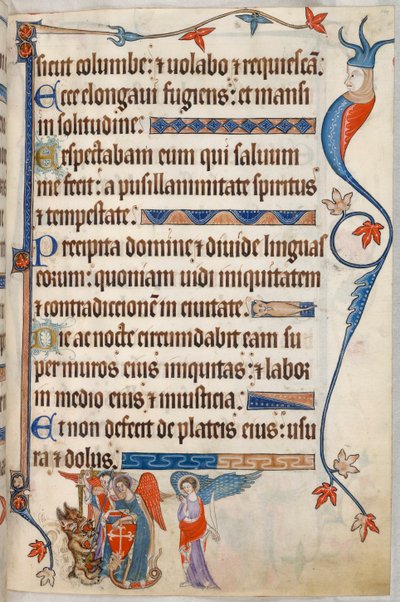 sicut columbe: ⁊ uolabo ⁊ requiescā.
Ecce elongaui fugiens: et mansi
in solitudine.
Aexpectabam eum qui saluum
me fecit: a pusillanimitate spiritus
⁊ tempestate.
Precipita domine ⁊ diuide linguas
eorum: quoniam uidi iniquitatem
⁊ contradiccionē in ciuitate.
Die ac nocte circumdabit eam su
per muros eius iniquitas: ⁊ labor
in medio eius ⁊ iniusticia.
Et non defecit de plateis eius: usu
ra ⁊ dolus.